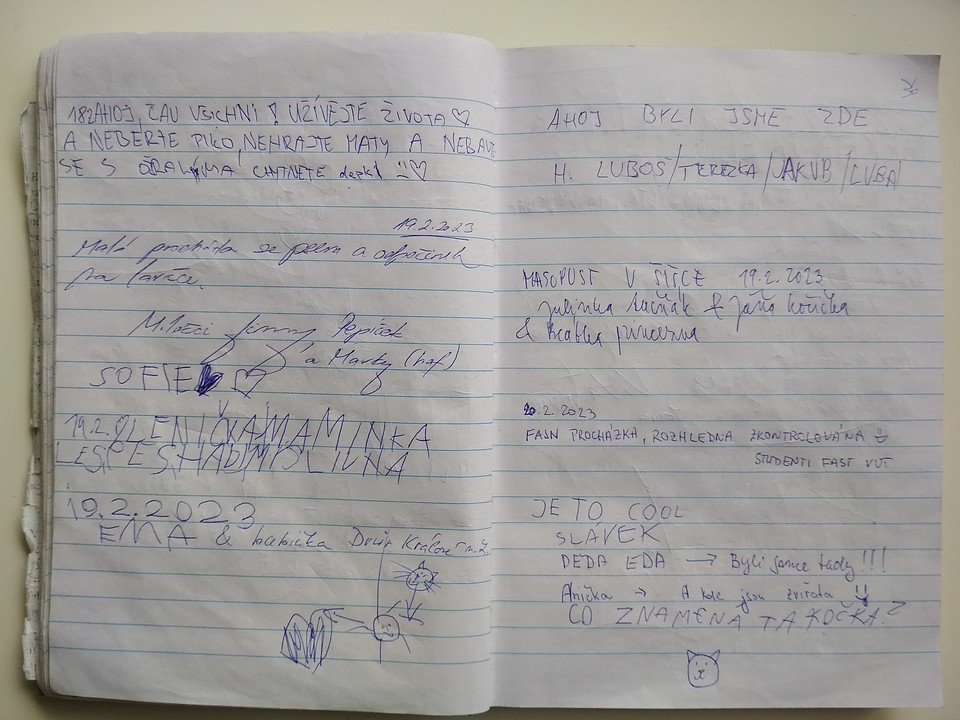 182AHOJ, ČAU VŠICHNI! UŽÍVEJTE ŽIVOTA ♡
A NEBERTE PIKO, NEHRAJTE MATY A NEBAVTE
SE S
19.2.2023
Malá procházka se psem a odpočinek
na lavičce.
Jenny Pepíček
a Marky (haf)
SOFIE ♡
19.2. MAMINKA
19.2.2023
EMA & babička Dvůr Králové n.L
AHOJ BYLI JSME ZDE
H. LUBOŠ/TEREZKA/JAKUB/LUBA
MASOPUST V ŠITCE 19.2.2023
Julinka & Jáňa kočička
& princezna
20.2.2023
FAJN PROCHÁZKA, ROZHLEDNA ZKONTROLOVÁNA
STUDENTI FAST VUT
JE TO COOL
SLÁVEK
DĚDA EDA → Byli jsme tady!!!
Anička → A kde jsou zvířata
CO ZNAMENÁ TA KOČKA?